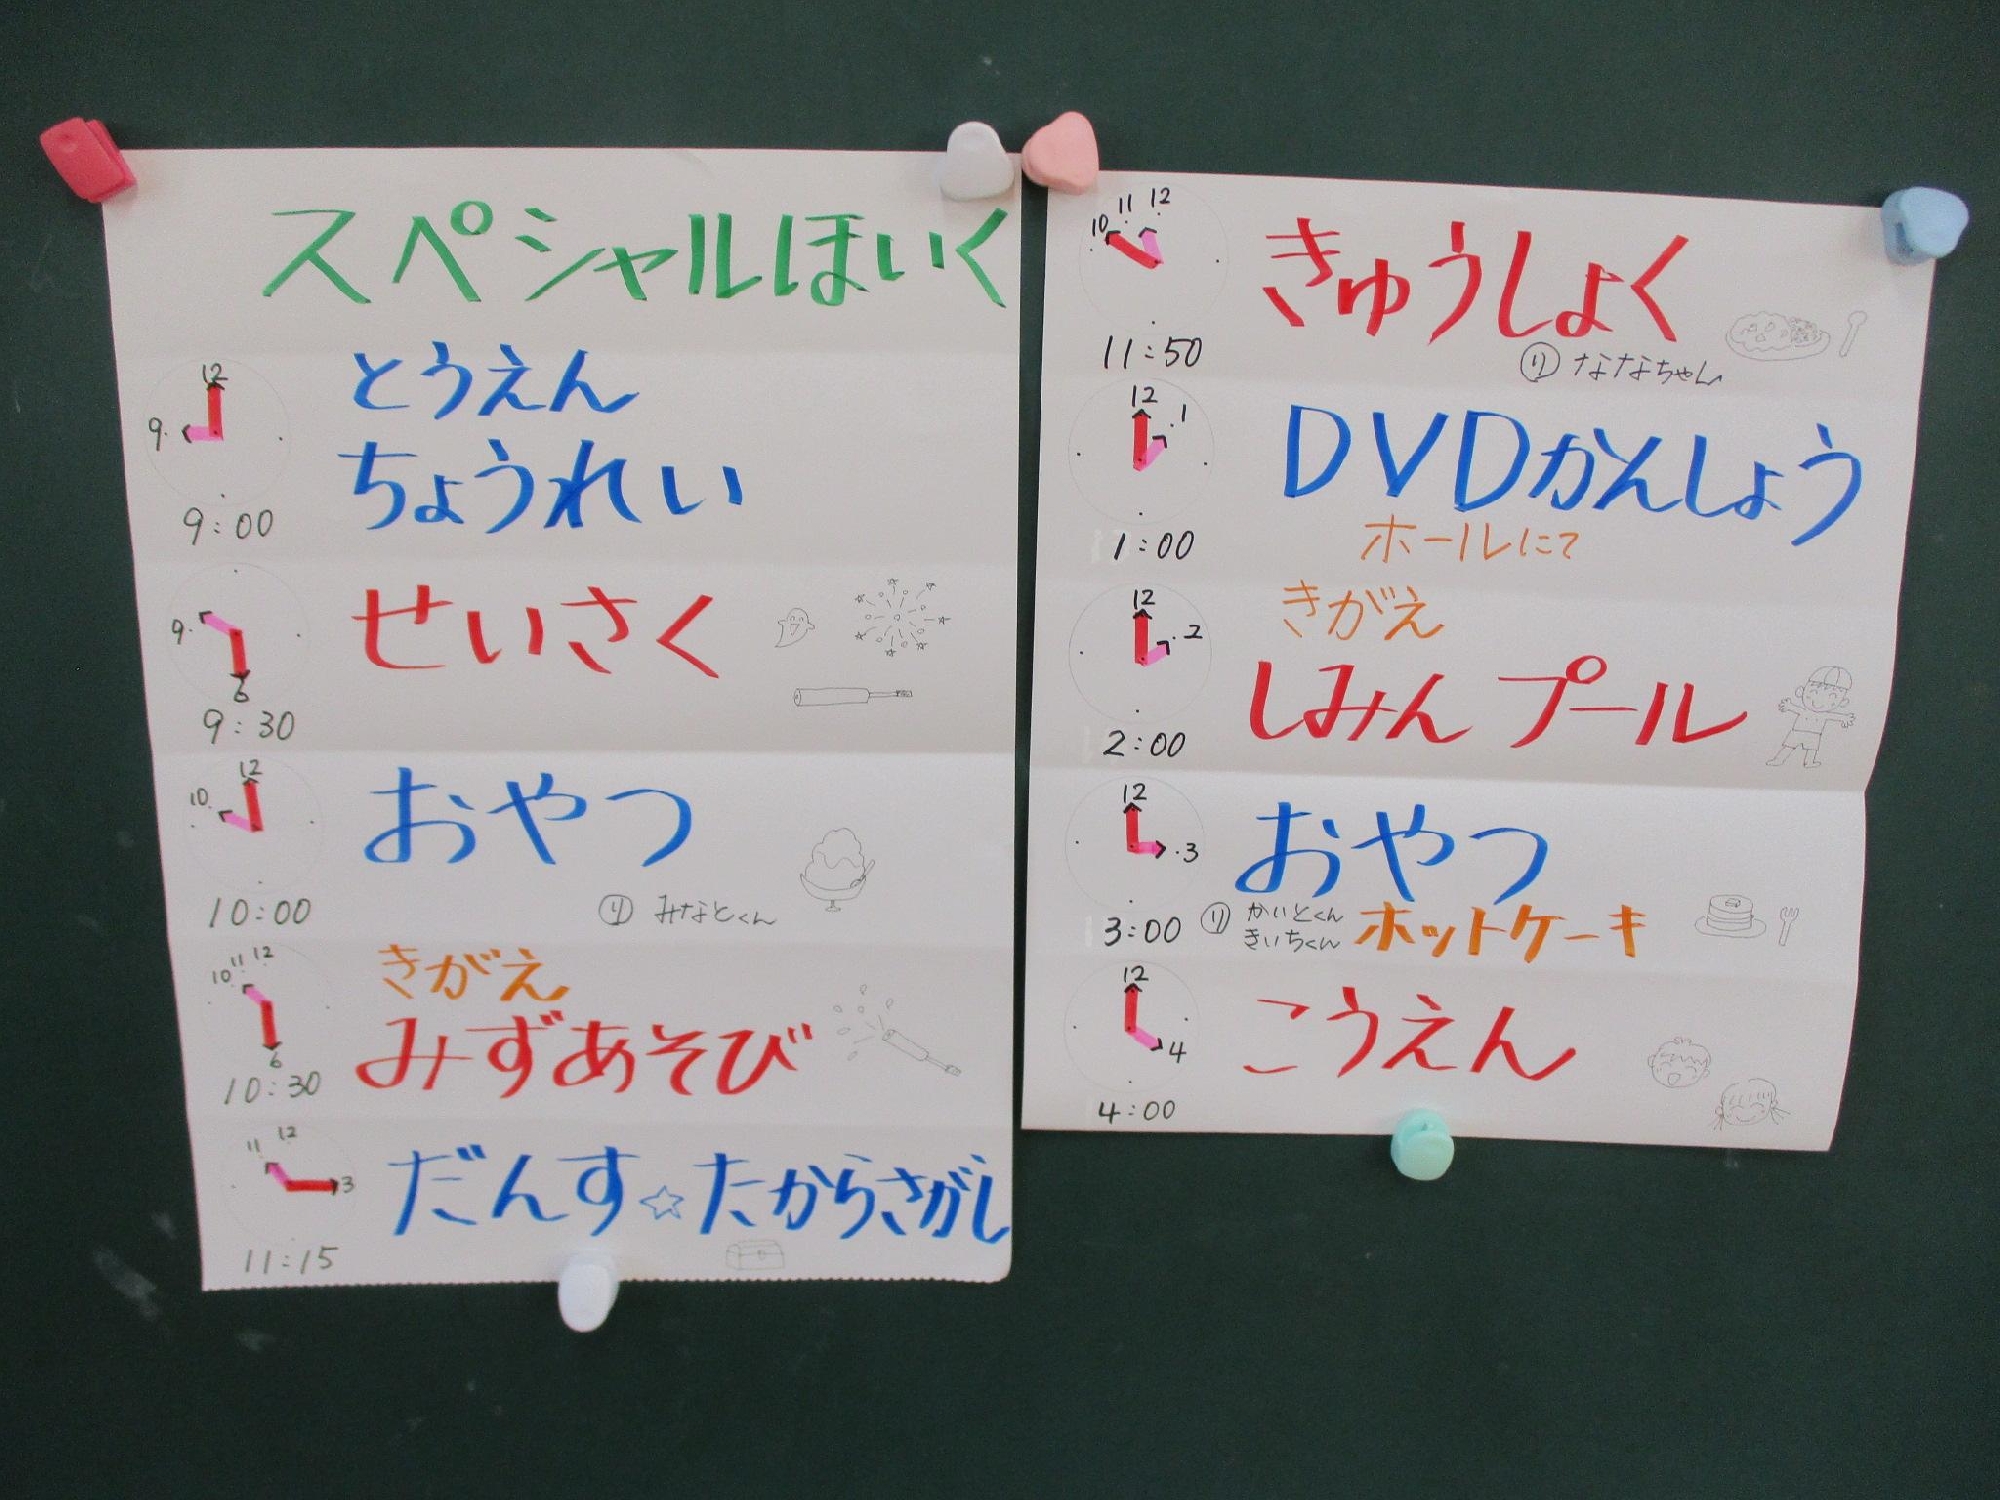 スペシャルほいく
12
9
9:00
とうえん
ちょうれい
9
6
9:30
せいさく
12
10
10:00
おやつ
リ みなとくん
10 11 12
6
10:30
きがえ
みずあそび
11 12
3
11:15
だんす☆たからさがし
10 11 12
11:50
きゅうしょく
リ ななちゃん
12
1
1:00
DVDかんしょう
ホールにて
12
2
2:00
きがえ
しみんプール
12
3
3:00
おやつ
リ かいとくん
きいちくん
ホットケーキ
12
4
4:00
こうえん